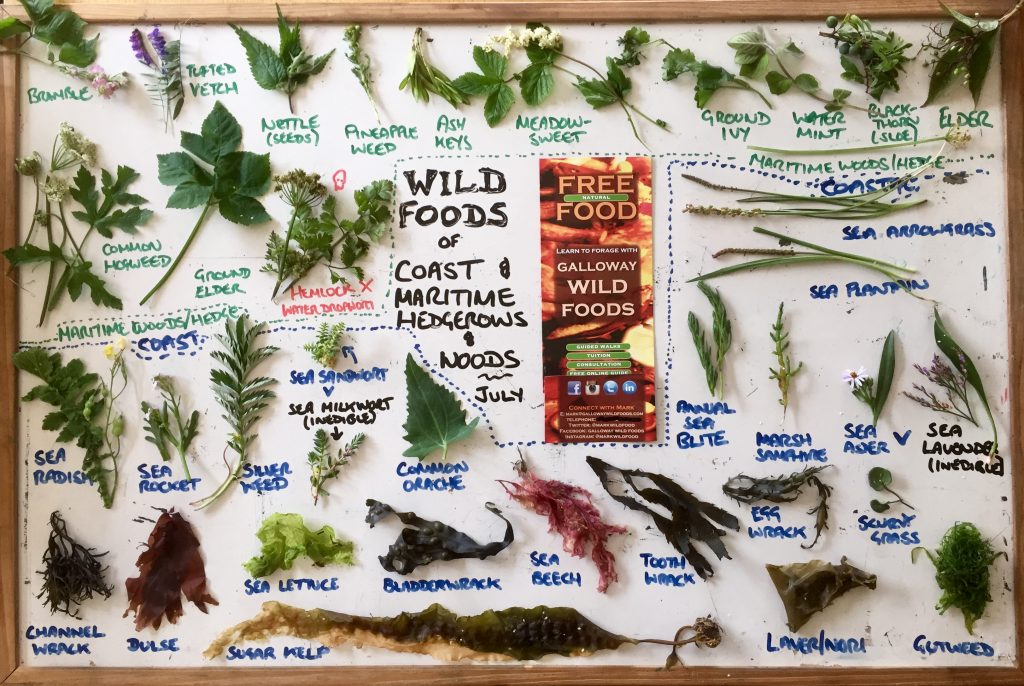 BRAMBLE
TUFTED
VETCH
NETTLE
(SEEDS)
PINEAPPLE
WEED
ASH
KEYS
MEADOW-
SWEET
GROUND
IVY
WATER
MINT
BLACK-
THORN
(SLOE)
ELDER
COMMON
HOGWEED
GROUND
ELDER
HEMLOCK X
WATER DROPWORT
MARITIME WOODS/HEDGE
COAST
WILD
FOODS
OF
COAST &
MARITIME
HEDGEROWS
&
WOODS
JULY
FREE
NATURAL
FOOD
LEARN TO FORAGE WITH
GALLOWAY
WILD
FOODS
GUIDED WALKS
TUITION
CONSULTATION
FREE ONLINE GUIDE
CONNECT WITH MARK
E: MARK@GALLOWAYWILDFOODS.COM
TELEPHONE:
TWITTER: @MARKWILDFOOD
FACEBOOK: GALLOWAY WILD FOODS
INSTAGRAM: @MARKWILDFOOD
MARITIME WOODS/HEDGE
COASTIC
SEA ARROWGRASS
SEA PLANTAIN
SEA
RADISH
SEA
ROCKET
SILVER
WEED
SEA SANDWORT
SEA MILKWORT
(INEDIBLE)
COMMON
ORACHE
ANNUAL
SEA
BLITE
MARSH
SAMPHIRE
SEA
ASTER
SEA
LAVENDER
(INEDIBLE)
CHANNEL
WRACK
DULSE
SEA LETTUCE
BLADDERWRACK
SEA
BEECH
TOOTH
WRACK
EGG
WRACK
SCURVY
GRASS
SUGAR KELP
LAVER/NORI
GUTWEED